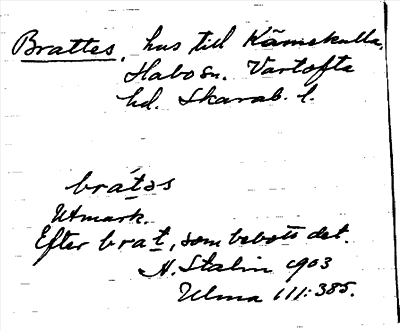 Brattes, hus till Kämekulla,
Habo sn. Vartofta
hd. Skarab. l.
brátəs
Utmark.
Efter brat, som bebott det.
H. Stalin 1903
Ulma 111:385.